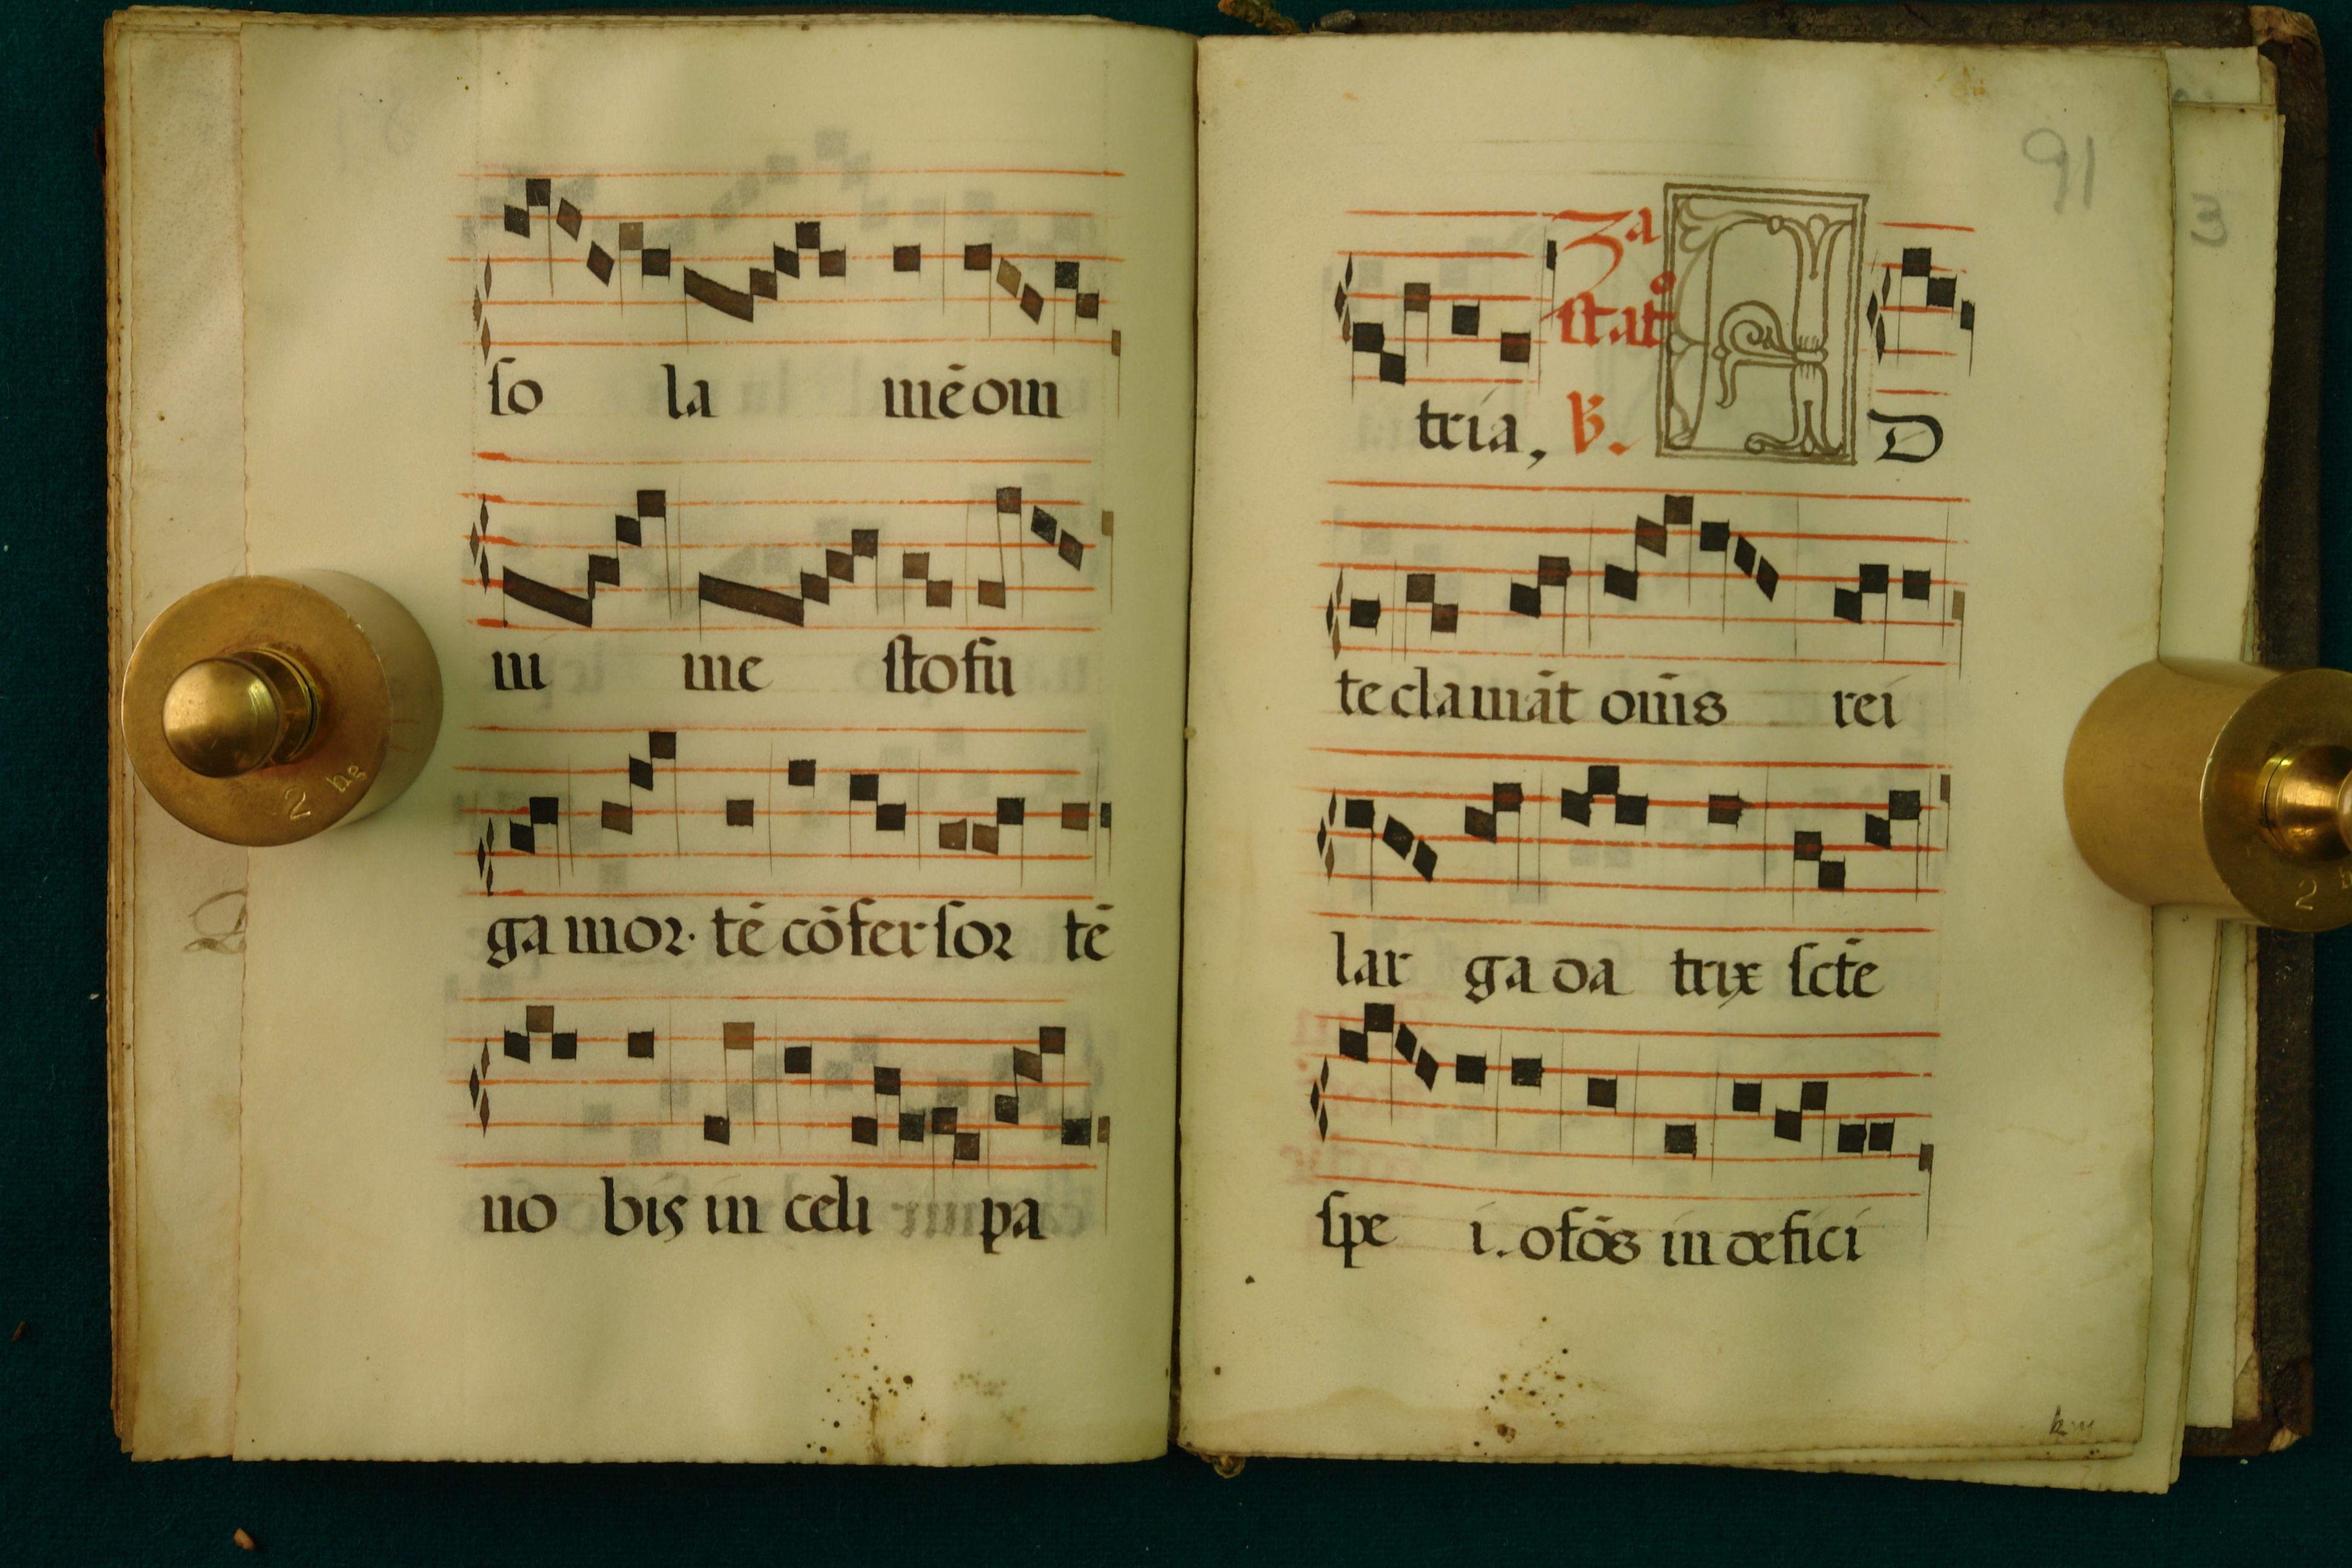 so la mēom
ni me stofu
ga mor. tē cōfer sor tē
no bis in celi pa
za
stat°
tria, ℟. A D
te clamāt om̄s rei
lar ga da trix sctē
spe i. o fōs in defici
91
3
2 hg
2